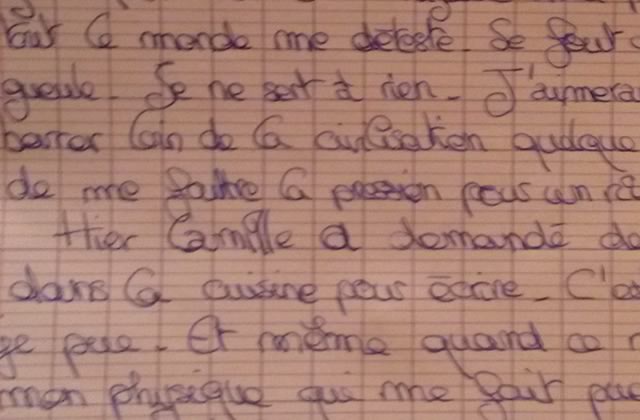 Tout le monde me déteste. Je
gueule. Je ne sert à rien. J'aimera
barrer loin de la civilisation quelque
de me foutre la pression pour un
Hier Camille a demandé de
dans la cuisine pour écrire. C'
je pue. Et même quand ce
mon physique qui me fait